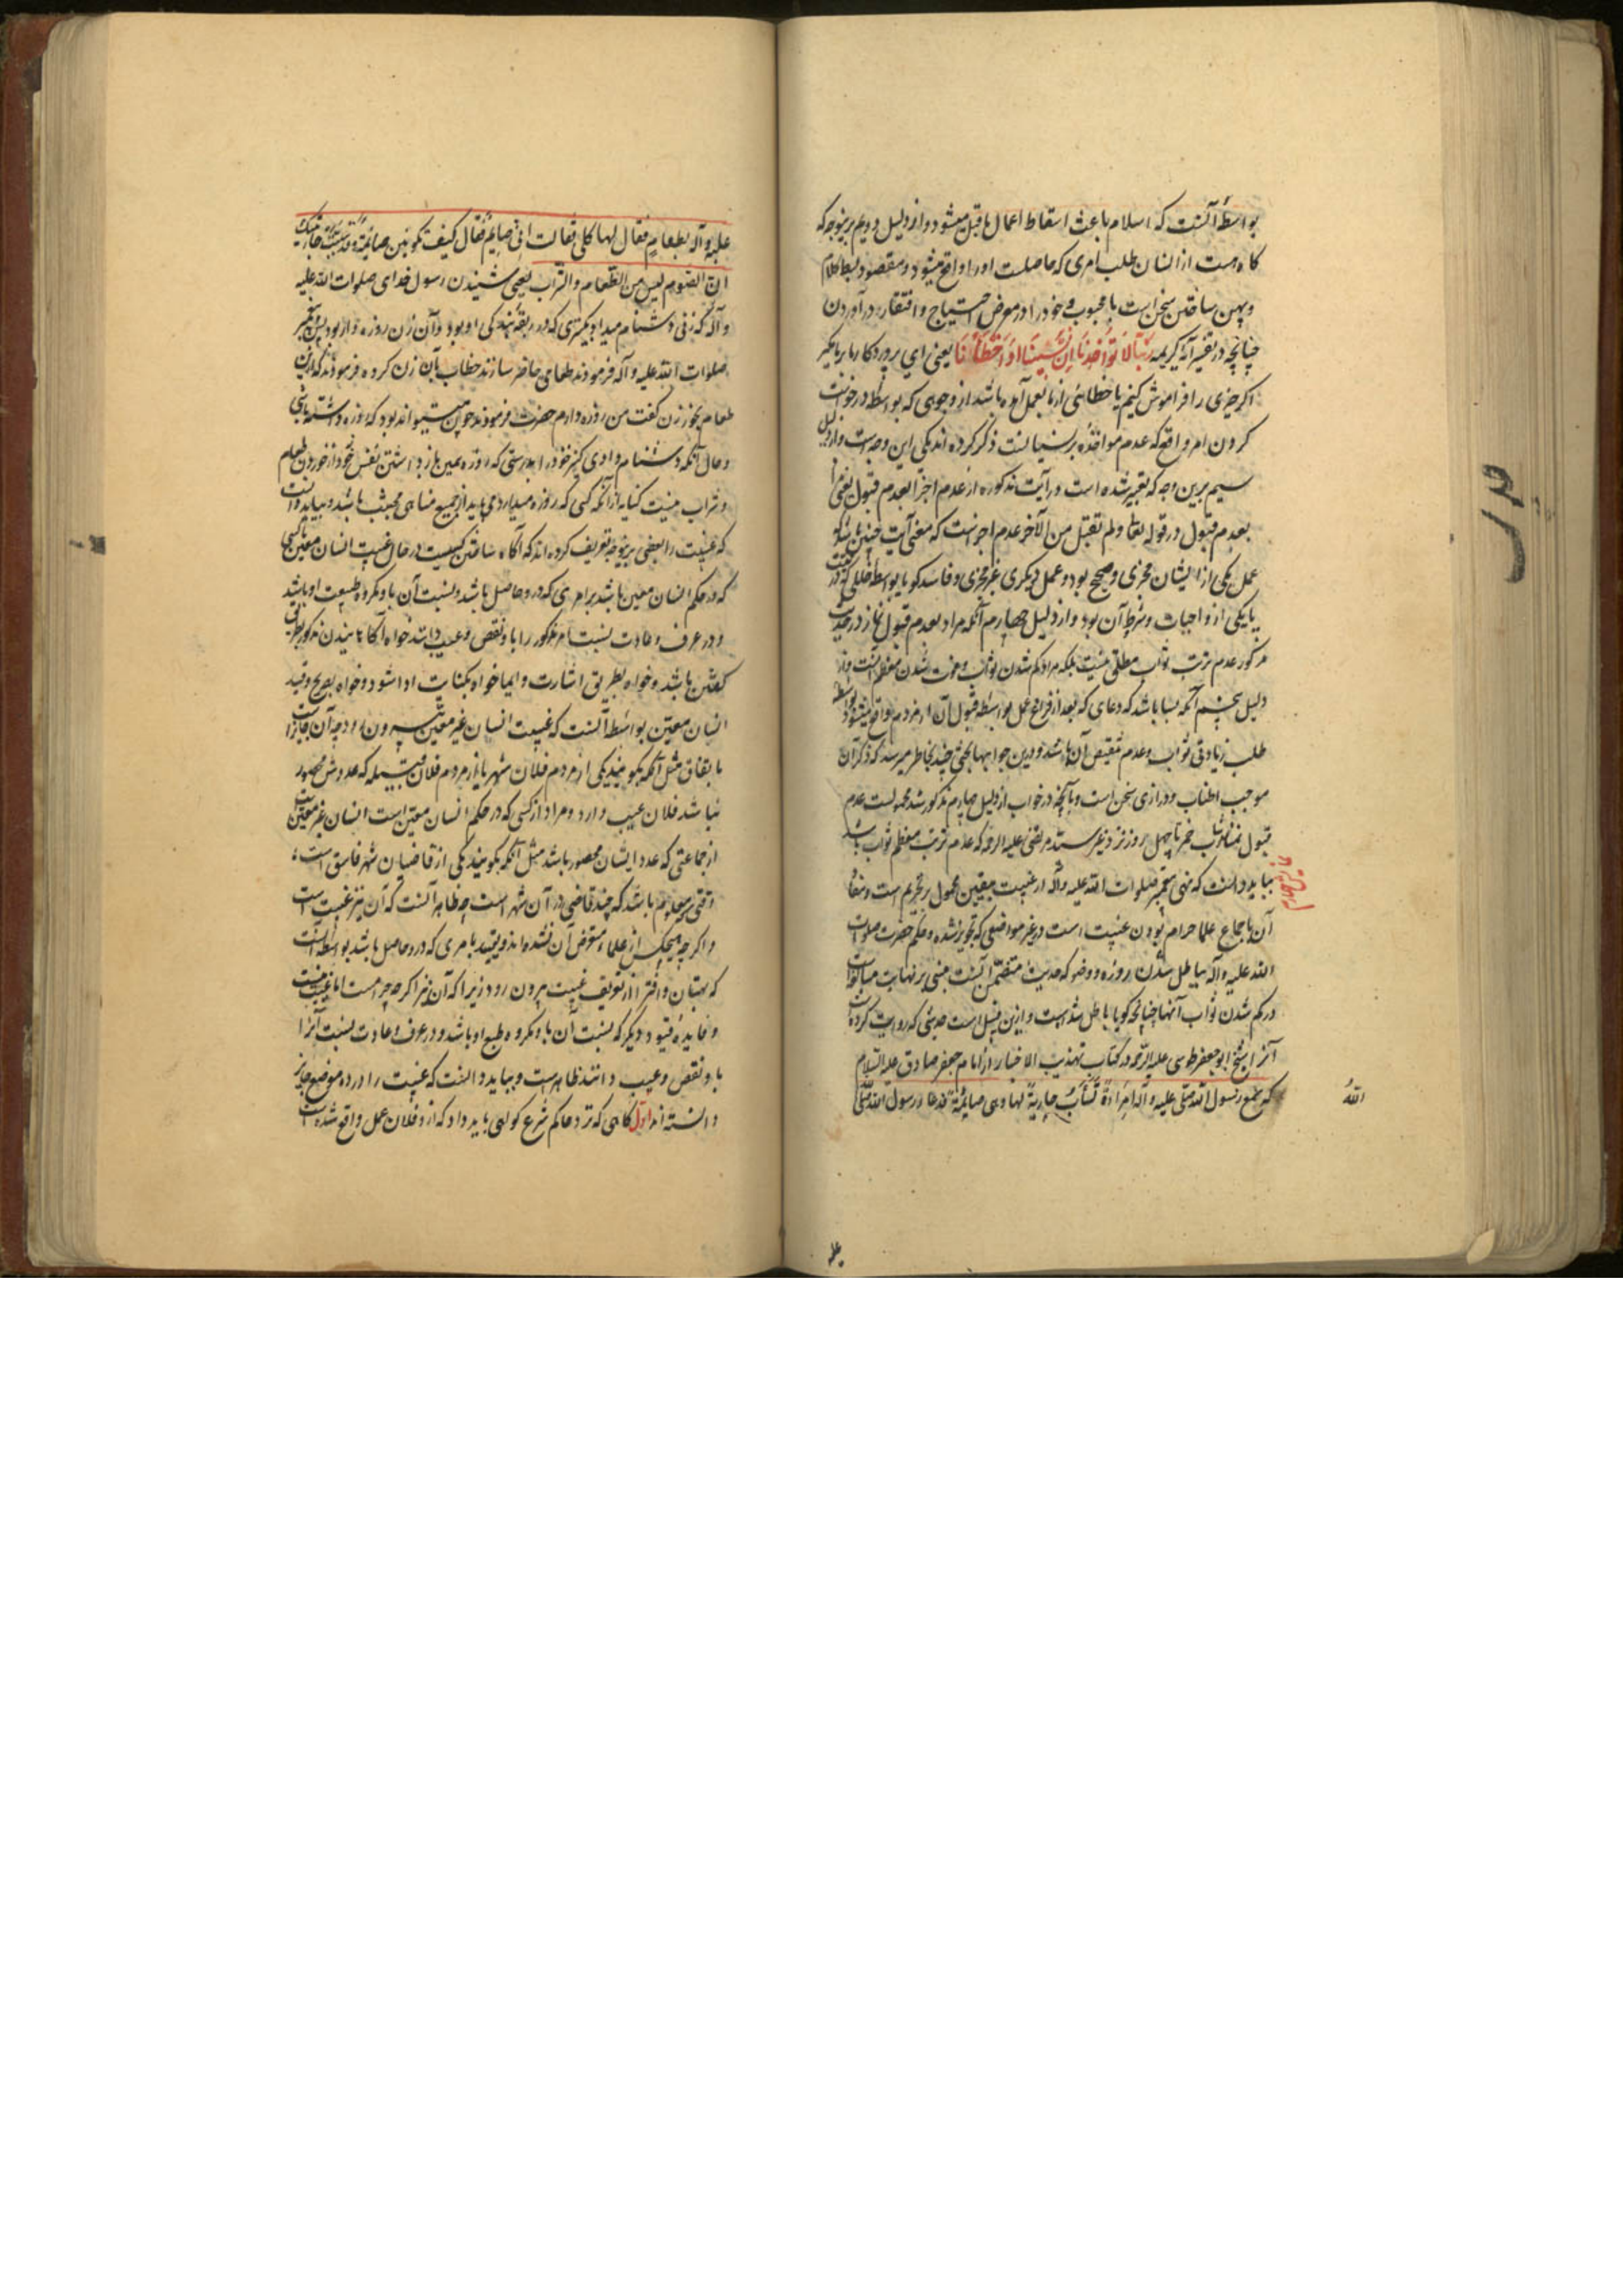 بواسطهٔ آنست که اسلام باعث اسقاط اعمال ماقبل میشود و از دلیل دویم برینوجه که
کاه هست از انسان طلب امری که حاصلست او را واقع میشود و مقصود بسط کلام
و پهن ساختن سخن است با محبوب و خود را در معرض احتیاج و افتقار در آوردن
چنانچه در تفسیر آیهٔ کریمه رَبَّنَا لَا تُؤَاخِذْنَا إِنْ نَسِینَا أَوْ أَخْطَأْنَا یعنی ای پروردکار ما بر ما مکیر
اکر چیزی را فراموش کنیم یا خطائی از ما بعمل آمده باشد از وجوهی که بواسطه درخواست
کردن امر واقع که عدم مواخذه بر نسیانست ذکر کرده اند یکی این وجه است و از دلیل
سیم برین وجه که تعبیر شده است در آیت مذکوره از عدم اجزا بعدم قبول یعنی مراد
بعدم قبول در قوله تعالی ولم تقبل من الآخر عدم اجزاست که معنی آیت چنین باشد که
عمل یکی از ایشان مجزی و صحیح بود و عمل دیکری غیر مجزی و فاسد کویا بواسطه خللی که در نیت
یا یکی از واجبات و شرط آن بود و از دلیل چهارم آنکه مراد بعدم قبول نماز در حدیث
مذکور عدم ترتب ثواب مطلق نیست بلکه مراد کم شدن ثواب و فوت شدن معظم آنست و از
دلیل پنجم آنکه بسا باشد که دعای که بعد از فراغ عمل بواسطه قبول آن از مردم واقع میشود بواسطه
طلب زیادتی ثواب و عدم تنقیص آن باشد و درین جوابها بحثی چند بخاطر میرسد که ذکر آن
موجب اطناب و درازی سخن است و بآنچه در جواب از دلیل چهارم مذکور شد محمولست عدم
قبول نماز شارب خمر تا چهل روز نزد غیر سید مرتضی علیه الرحمه که عدم ترتب معظم ثواب باشد
بباید دانست که نهی پیغمبر صلوات الله علیه و آله از غیبت معین محمول بر تحریم است و منشأ
آن اجماع علما حرام بودن غیبت است در غیر مواضعی که تجویز شده و حکم حضرت صلوات
الله علیه و آله بباطل شدن روزه و وضو که حدیث متضمن آنست مبنی بر نهایت مبالغه است
در کم شدن ثواب آنها چنانچه کویا باطل شده است و ازین قبیل است حدیثی که روایت کرده است
آنرا شیخ ابو جعفر طوسی علیه الرحمه در کتاب تهذیب الاخبار از امام جعفر صادق علیه السلام
که سمع رسول الله صلی علیه و آله امرأة تسابّ جاریة لها وهی صائمة فدعا رسول الله صلی
الله
علیه
علیه و آله بطعام فقال لها کلی فقالت انی صائم فقال کیف تکونین صائمة وقد سببت جاریتک
ان الصوم لیس من الطعام و الشراب یعنی شنیدن رسول خدای صلوات الله علیه
و آله که زنی دشنام میداد کنیزی که در ربقهٔ بندکی او بود و آن زن روزه دار بود پس پیغمبر
صلوات الله علیه و آله فرمودند طعامی حاضر سازند خطاب بآن زن کرده فرمودند که ازین
طعام بخور زن کفت من روزه دارم حضرت فرمودند چون میتواند بود که روزه داشته باشی
و حال آنکه دشنام دادی کنیز خود را بدرستی که روزه همین باز داشتن نفس خود از خوردن طعام
و شراب نیست کنایه از آنکه کسی که روزه میدارد می باید از جمیع مناهی مجتنب باشد و بباید دانست
که غیبت را بعضی برینوجه تعریف کرده اند که آکاه ساختن کسیست در حال غیبت انسان معین یا کسی
که در حکم انسان معین باشد بر امری که در و حاصل باشد و نسبت آن باو مکروه طبیعت او باشد
و در عرف و عادت نسبت امر مذکور را باو نقص و عیب دانند خواه آکاهانیدن مذکور بطریق
کفتن باشد و خواه بطریق اشارت و ایما خواه بکنایت ادا شود و خواه بصریح و قید
انسان معین بواسطه آنست که غیبت انسان غیر معین بیرون رود چه آن جایز است
باتفاق مثل آنکه بکویند یکی از مردم فلان شهر یا از مردم فلان قبیله که عددش محصور
نباشد فلان عیب دارد و مراد از کسی که در حکم انسان معین است انسان غیر معین است
از جماعتی که عدد ایشان محصور باشد مثل آنکه بکویند یکی از قاضیان شهر فاسق است
وقتی که معلوم باشد که چند قاضی در آن شهر است چه ظاهر آنست که آن نیز غیبت است
و اکرچه هیچکس از علماء متعرض آن نشده اند و تقیید بامری که در و حاصل باشد بواسطه آنست
که بهتان و افترا از تعریف غیبت بیرون رود زیرا که آن نیز اکرچه حرامست اما غیبت نیست
و فایدهٔ قیود دیکر که نسبت آن باو مکروه طبع او باشد و در عرف و عادت نسبت آنرا
باو نقص و عیب دانند ظاهر است و بباید دانست که غیبت را در ده موضع جایز
دانسته اند اول کاهی که نزد حاکم شرع کواهی باید داد که از و فلان عمل واقع شده است